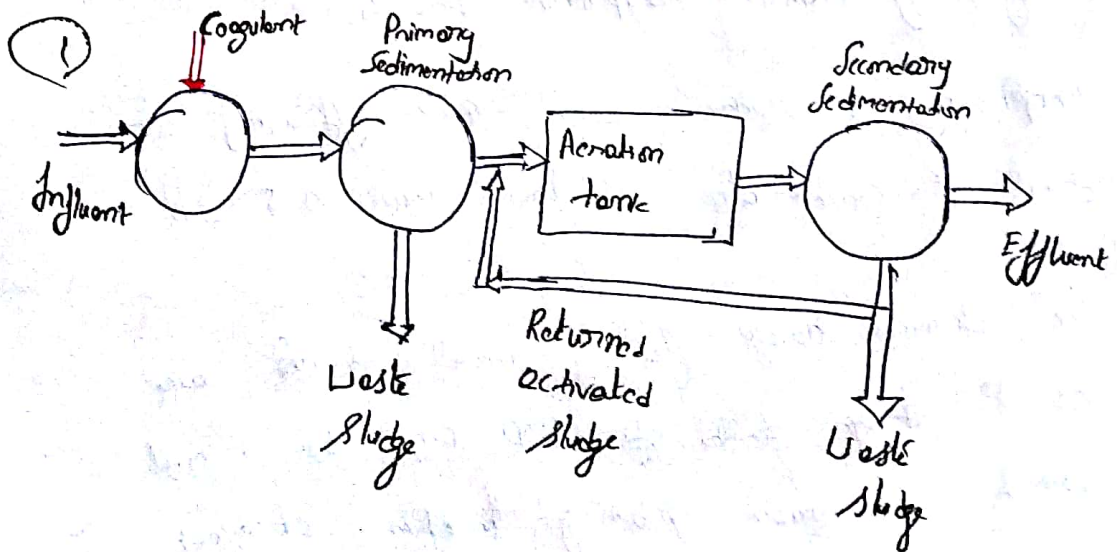 1
Coagulant
Primary
Sedimentation
Secondary
Sedimentation
Influent
Aeration
tank
Effluent
Returned
activated
sludge
Waste
sludge
Waste
sludge